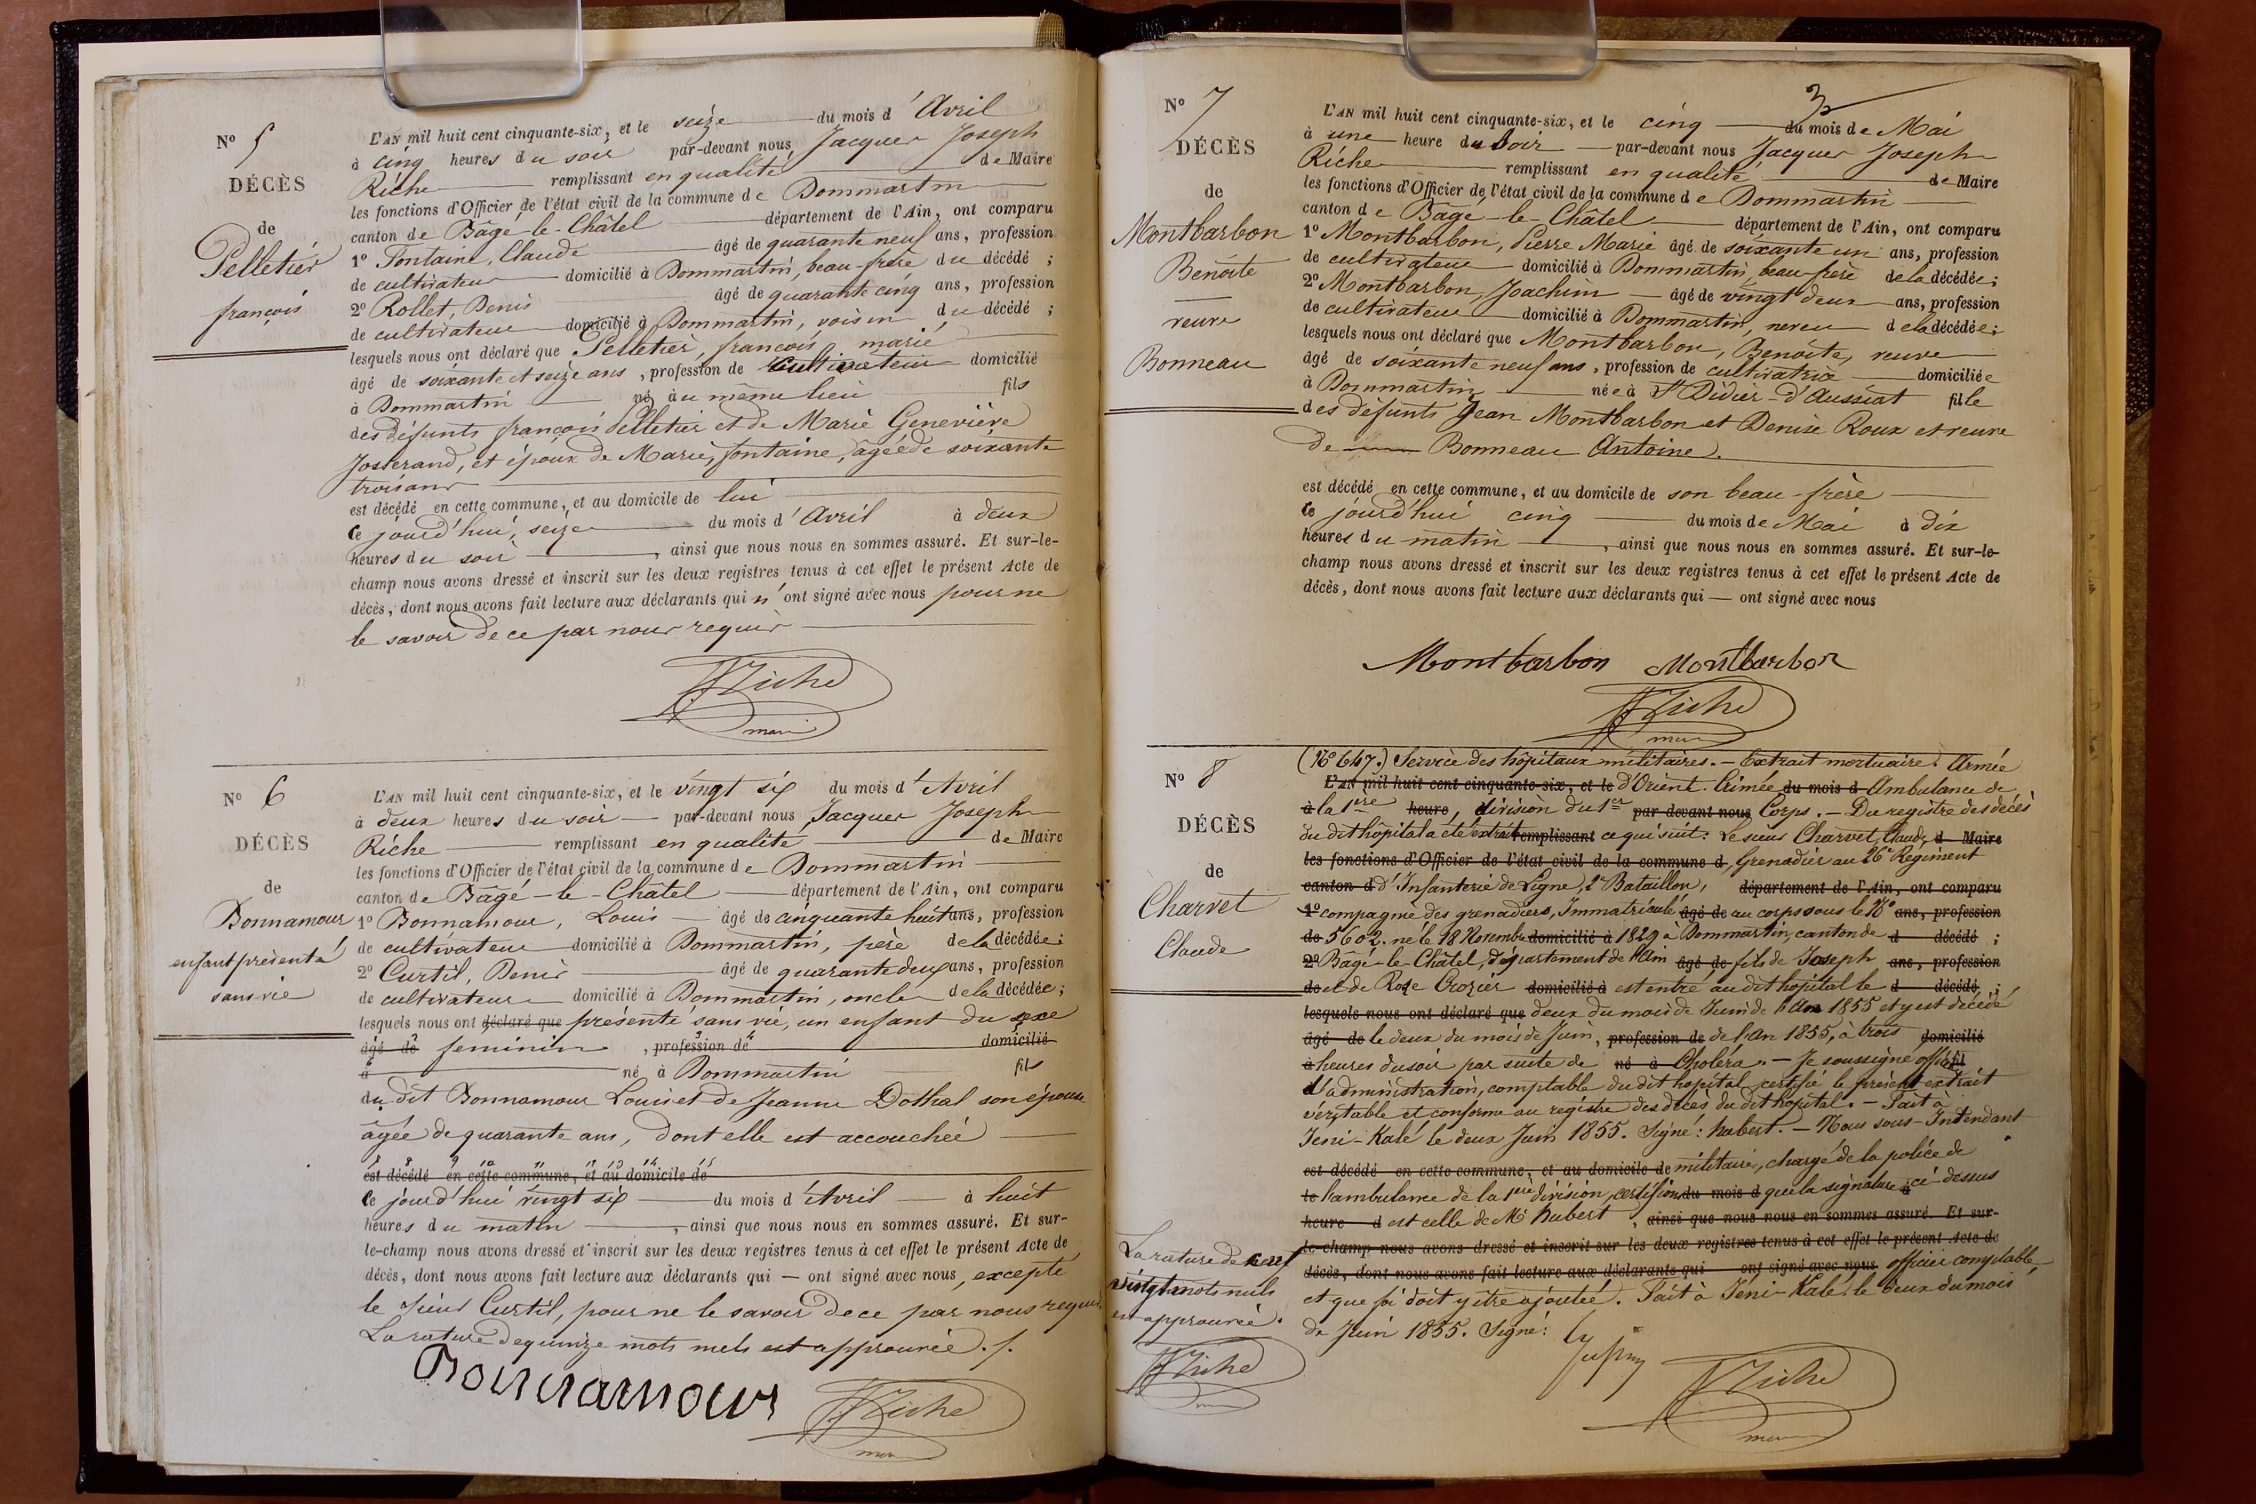 N° 5
DÉCÈS
de
Pelletier
françois
L'AN mil huit cent cinquante-six, et le seize du mois d'Avril
à cinq heures du soir par-devant nous Jacques Joseph
Riche remplissant en qualité de Maire
les fonctions d'Officier de l'état civil de la commune de Dommartin
canton de Bâgé-le-Châtel département de l'Ain, ont comparu
1° Fontaine, Claude âgé de quarante neuf ans, profession
de cultivateur domicilié à Dommartin, beau-frère du décédé ;
2° Rollet, Denis âgé de quarante cinq ans, profession
de cultivateur domicilié à Dommartin, voisin du décédé ;
lesquels nous ont déclaré que Pelletier, françois, marié
âgé de soixante et seize ans, profession de cultivateur domicilié
à Dommartin né au même lieu fils
des défunts françois Pelletier et de Marie Geneviève
Josserand, et époux de Marie, fontaine, âgée de soixante
trois ans
est décédé en cette commune, et au domicile de lui
ce jourd'hui, seize du mois d'Avril à deux
heures du soir, ainsi que nous nous en sommes assuré. Et sur-le-
champ nous avons dressé et inscrit sur les deux registres tenus à cet effet le présent Acte de
décès, dont nous avons fait lecture aux déclarants qui n'ont signé avec nous pour ne
le savoir de ce par nous requis
Riche
maire
N° 6
DÉCÈS
de
Bonnamour
enfant présenté
sans vie
L'AN mil huit cent cinquante-six, et le vingt six du mois d'Avril
à deux heures du soir par-devant nous Jacques Joseph
Riche remplissant en qualité de Maire
les fonctions d'Officier de l'état civil de la commune de Dommartin
canton de Bâgé-le-Châtel département de l'Ain, ont comparu
1° Bonnamour, Louis âgé de cinquante huit ans, profession
de cultivateur domicilié à Dommartin, père de la décédée ;
2° Curtil, Denis âgé de quarante deux ans, profession
de cultivateur domicilié à Dommartin, oncle de la décédée ;
lesquels nous ont déclaré que présenté sans vie, un enfant du sexe
âgé de feminin, profession de domicilié
à né à Dommartin fil
du dit Bonnamour Louis et de Jeanne Dothal son épouse
âgée de quarante ans, dont elle est accouchée
est décédé en cette commune, et au domicile de
ce jourd'hui vingt six du mois d'Avril à huit
heures du matin, ainsi que nous nous en sommes assuré. Et sur-
le-champ nous avons dressé et inscrit sur les deux registres tenus à cet effet le présent Acte de
décès, dont nous avons fait lecture aux déclarants qui — ont signé avec nous, excepté
le sieur Curtil, pour ne le savoir de ce par nous requis
La rature de quinze mots nuls est approuvée ./.
Bonnamour
Riche
maire
3
N° 7
DÉCÈS
de
Montbarbon
Benoite
veuve
Bonneau
L'AN mil huit cent cinquante-six, et le cinq du mois de Mai
à une heure du Soir par-devant nous Jacques Joseph
Riche remplissant en qualité de Maire
les fonctions d'Officier de l'état civil de la commune de Dommartin
canton de Bâgé-le-Châtel département de l'Ain, ont comparu
1° Montbarbon, Pierre Marie âgé de soixante un ans, profession
de cultivateur domicilié à Dommartin, beau frère de la décédée ;
2° Montbarbon, Joachim âgé de vingt deux ans, profession
de cultivateur domicilié à Dommartin, neveu de la décédée ;
lesquels nous ont déclaré que Montbarbon, Benoite, veuve
âgé de soixante neuf ans, profession de cultivatrice domiciliée
à Dommartin née à St Didier-d'Aussiat fille
des défunts Jean Montbarbon et Denise Roux et veuve
de Bonneau Antoine.
est décédé en cette commune, et au domicile de son beau-frère
ce jourd'hui cinq du mois de Mai à dix
heures du matin, ainsi que nous nous en sommes assuré. Et sur-le-
champ nous avons dressé et inscrit sur les deux registres tenus à cet effet le présent Acte de
décès, dont nous avons fait lecture aux déclarants qui — ont signé avec nous
Montbarbon Montbarbon
Riche
maire
N° 8
DÉCÈS
de
Charvet
Claude
(N° 647.) Service des hôpitaux militaires. — Extrait mortuaire. Armée
L'AN mil huit cent cinquante-six, et le d'Orient. Crimée du mois d Ambulance de
à la 1ère heure, division du 1er par-devant nous Corps. — Du registre des décès
du dit hôpital a été extrait remplissant ce qui suit : Le sieur Charvet, Claude, d Maire
les fonctions d'Officier de l'état civil de la commune d, Grenadier au 26e Régiment
canton d d'Infanterie de Ligne, 2e Bataillon, département de l'Ain, ont comparu
1° compagnie des grenadiers, Immatriculé âgé de au corps sous le N° ans, profession
de 5602. né le 18 Novembre domicilié à 1829 à Dommartin, canton de d décédé ;
2° Bâgé-le-Châtel, département de l'Ain âgé de fils de Joseph ans, profession
de et de Rose Crozier domicilié à est entré au dit hopital le d décédé ;
lesquels nous ont déclaré que deux du mois de Juin de l'an 1855 et y est décédé
âgé de le deux du mois de Juin, profession de de l'an 1855, à trois domicilié
à heures du soir par suite de né à Choléra. — Je soussigné officier fil
d'administration, comptable du dit hopital, certifié le présent extrait
véritable et conforme au registre des décès du dit hopital. — Fait à
Jeni-Kalé le deux Juin 1855. Signé : hubert. — Nous sous-Intendant
est décédé en cette commune, et au domicile de militaire, chargé de la police de
le l'ambulance de la 1ère division, certifions du mois d que la signature à ci-dessus
heure d est celle de Mr hubert, ainsi que nous nous en sommes assuré. Et sur-
le-champ nous avons dressé et inscrit sur les deux registres tenus à cet effet le présent Acte de
décès, dont nous avons fait lecture aux déclarants qui ont signé avec nous officier comptable
et que foi doit y être ajoutée. Fait à Jeni-Kalé, le deux du mois
de Juin 1855. Signé :
Riche
maire
La rature de cent
vingt mots nuls
est approuvée.
Riche